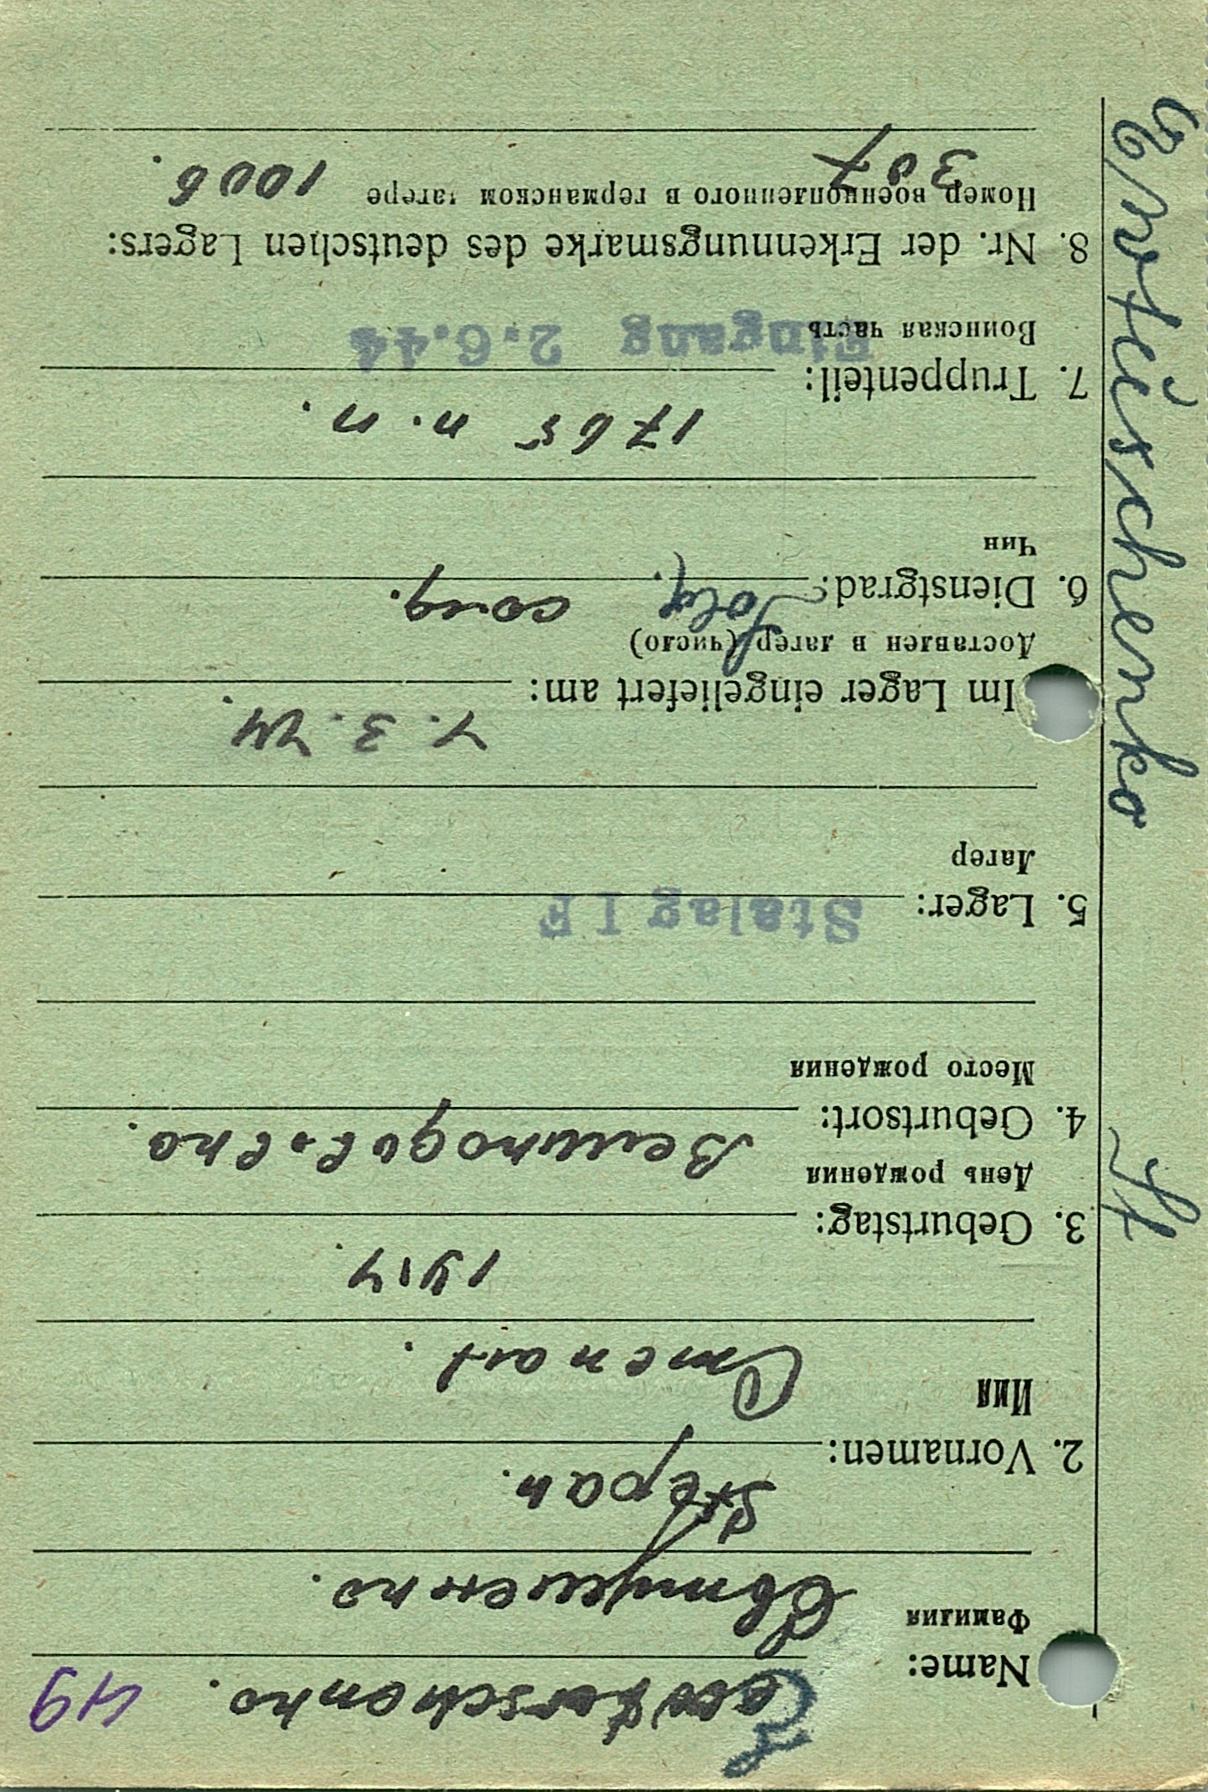 49
Name:
Фамилия
Евтушенко.
Stepan.
2. Vornamen:
Имя
Степан.
1917.
3. Geburtstag:
День рождения
4. Geburtsort:
Место рождения
5. Lager: Stalag I F
Лагер
7.3.44.
Im Lager eingeliefert am:
Доставлен в лагер (число)
6. Dienstgrad: Sold. солд.
Чин
1765 п.п.
7. Truppenteil:
Воинская часть Eingang 2.6.44
8. Nr. der Erkennungsmarke des deutschen Lagers:
Номер военнопленного в германском лагере 1006.
307